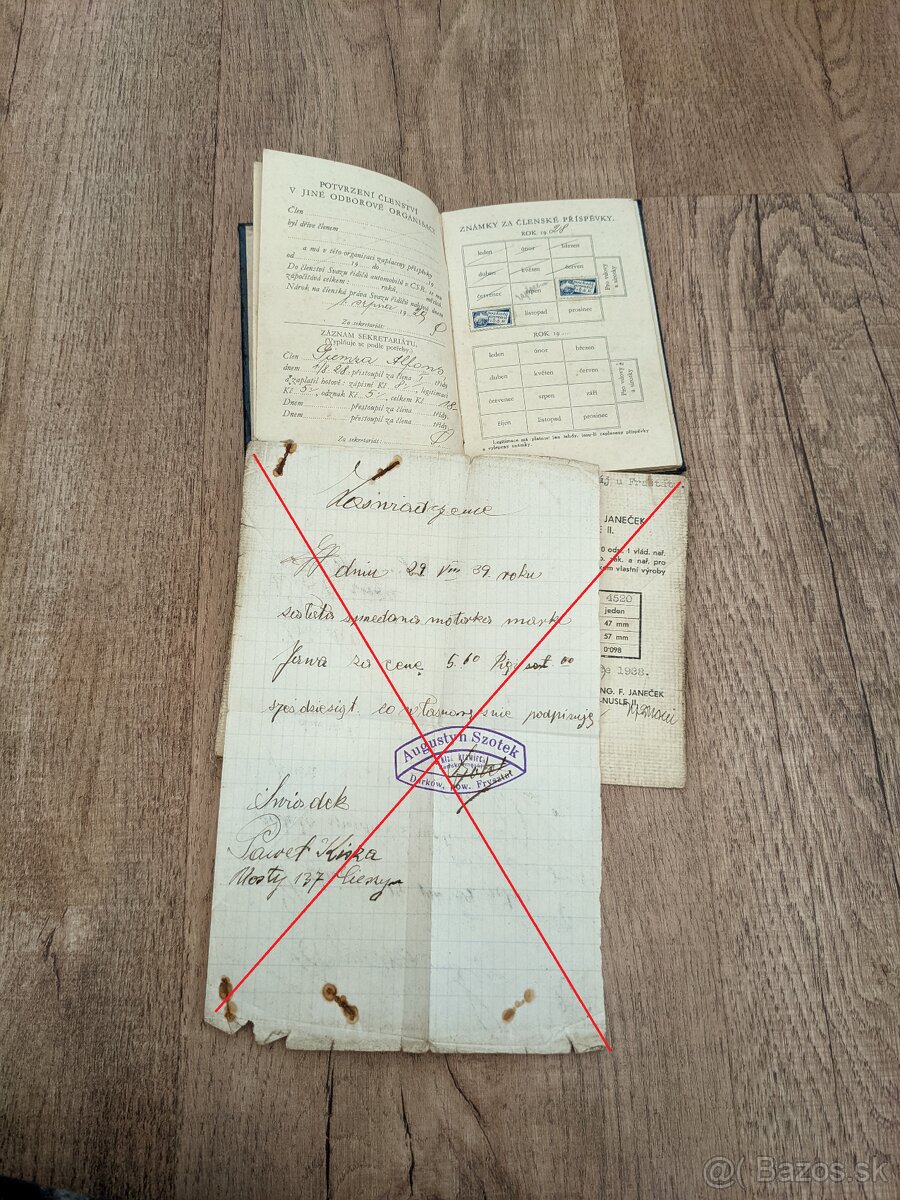 POTVRZENÍ ČLENSTVÍ
V JINÉ ODBOROVÉ ORGANISACI
Člen
byl dříve členem
a má v této organisaci zaplaceny příspěvky
od 19 do 19
Do členství Svazu řidičů automobilů v ČSR. se mu
započítává celkem: roků,
Nárok na členská práva Svazu řidičů nabývá dnem
1. srpna 1928
Za sekretariát:
ZÁZNAM SEKRETARIÁTU.
(Vyplňuje se podle potřeby.)
Člen Alfons
dnem 1/8 28. přistoupil za člena I třídy
a zaplatil hotově: zápisní Kč 8, legitimaci
Kč 5, odznak Kč 5, celkem Kč 18.
Dnem přestoupil za člena třídy.
Dnem přestoupil za člena třídy.
Za sekretariát:
ZNÁMKY ZA ČLENSKÉ PŘÍSPĚVKY.
ROK 1928
leden únor březen
duben květen červen
červenec srpen
listopad prosinec
Pro vdovy a sirotky
ROK 19
leden únor březen
duben květen červen
červenec srpen září
říjen listopad prosinec
Pro vdovy a sirotky
Legitimace má platnost jen tehdy, jsou-li zaplaceny příspěvky
a vylepeny známky.
u Fryštátu.
JANEČEK
E II.
0 odst. 1 vlád. nař.
zák. a nař. pro
vlastní výroby
4520
jeden
47 mm
57 mm
0·098
1938.
ING. F. JANEČEK
NUSLE II.
dniu 29 VIII 39. roku
została motorka marki
Jawa za cenę 5.60
podpisuję
Augustyn Szotek
Darków, pow. Frysztat
Świadek
Paweł
Mosty 137 Cieszyn
@ Bazos.sk